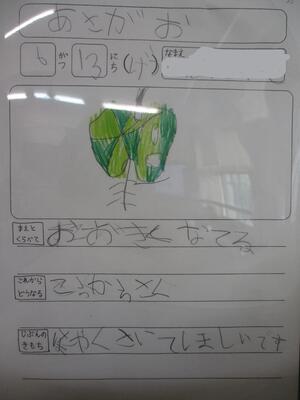 あさがお
6がつ13にち(げつ)
なまえ
まえとくらべて
おおきくなてる
これからどうなる
じぶんのきもち
はやくさいてほしいです